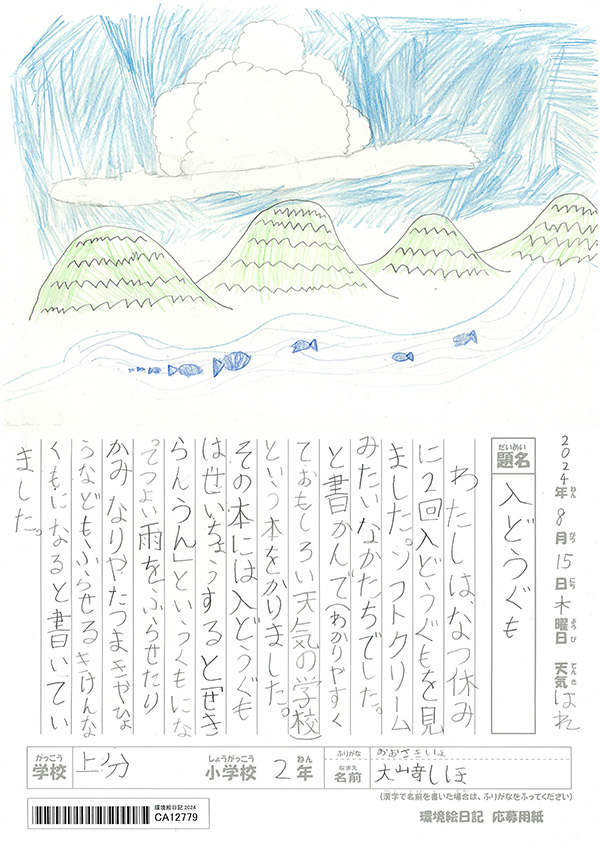 2024年ねん8月がつ15日にち木曜日ようび 天気てんきはれ
だいめい
題名
入どうぐも
わたしは、なつ休み
に2回入どうぐもを見
ました。ソフトクリーム
みたいなかたちでした。
と書かんで(わかりやすく
ておもしろい天気の学校)
という本をかりました。
その本には入どうぐも
はせいちょうすると「せき
らんうん」というくもにな
ってつよい雨をふらせたり
かみなりやたつまきやひょ
うなどもふらせるきけんな
くもになると書いてい
ました。
がっこう しょうがっこう ねん ふりがな おおさきしほ
学校 上分 小学校 2年 なまえ 名前 大崎しほ
(漢字で名前を書いた場合は、ふりがなをふってください)
環境絵日記2024
CA12779
環境絵日記 応募用紙